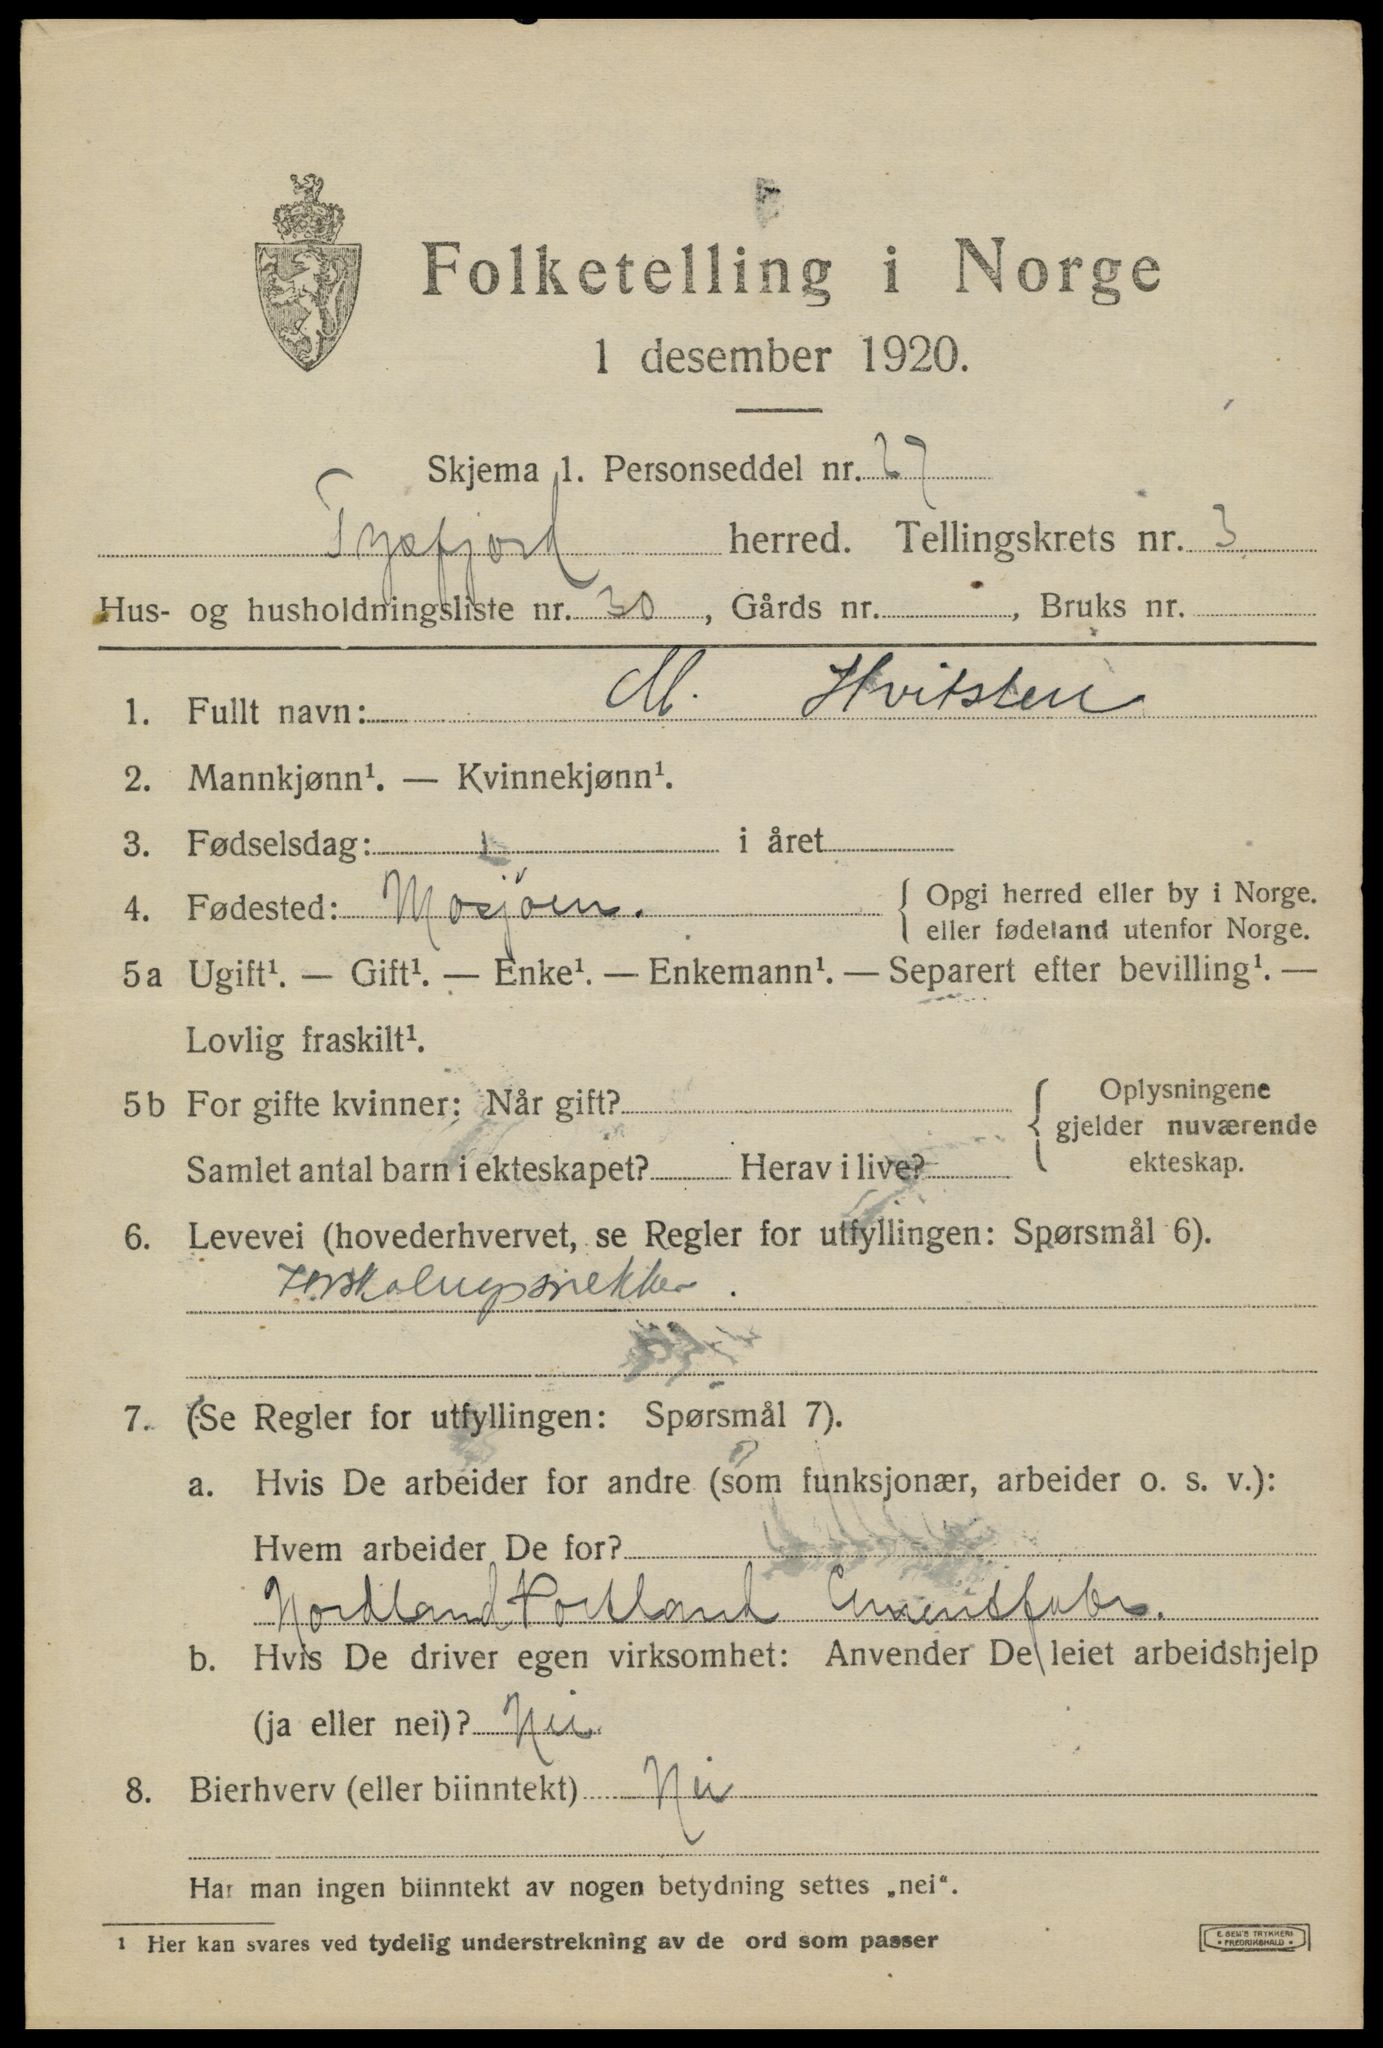 Folketelling i Norge
1 desember 1920.
Skjema 1. Personseddel nr. 27
Tysfjord herred. Tellingskrets nr. 3
Hus- og husholdningsliste nr. 30, Gårds nr. , Bruks nr.
1. Fullt navn: M. Hvitsten
2. Mannkjønn¹. — Kvinnekjønn¹.
3. Fødselsdag: i året
4. Fødested: Mosjöen. Opgi herred eller by i Norge.
eller fødeland utenfor Norge.
5a Ugift¹. — Gift¹. — Enke¹. — Enkemann¹. — Separert efter bevilling¹. —
Lovlig fraskilt¹.
5b For gifte kvinner: Når gift? Oplysningene
gjelder nuværende
Samlet antal barn i ekteskapet? Herav i live? ekteskap.
6. Levevei (hovederhvervet, se Regler for utfyllingen: Spørsmål 6).
Forskalingssnekker.
7. (Se Regler for utfyllingen: Spørsmål 7).
a. Hvis De arbeider for andre (som funksjonær, arbeider o. s. v.):
Hvem arbeider De for?
Nordland Portland Cementfabr.
b. Hvis De driver egen virksomhet: Anvender De leiet arbeidshjelp
(ja eller nei)? Nei
8. Bierhverv (eller biinntekt) Nei
Har man ingen biinntekt av nogen betydning settes „nei“.
¹ Her kan svares ved tydelig understrekning av de ord som passer
E. SEM'S TRYKKERI
FREDRIKSHALD